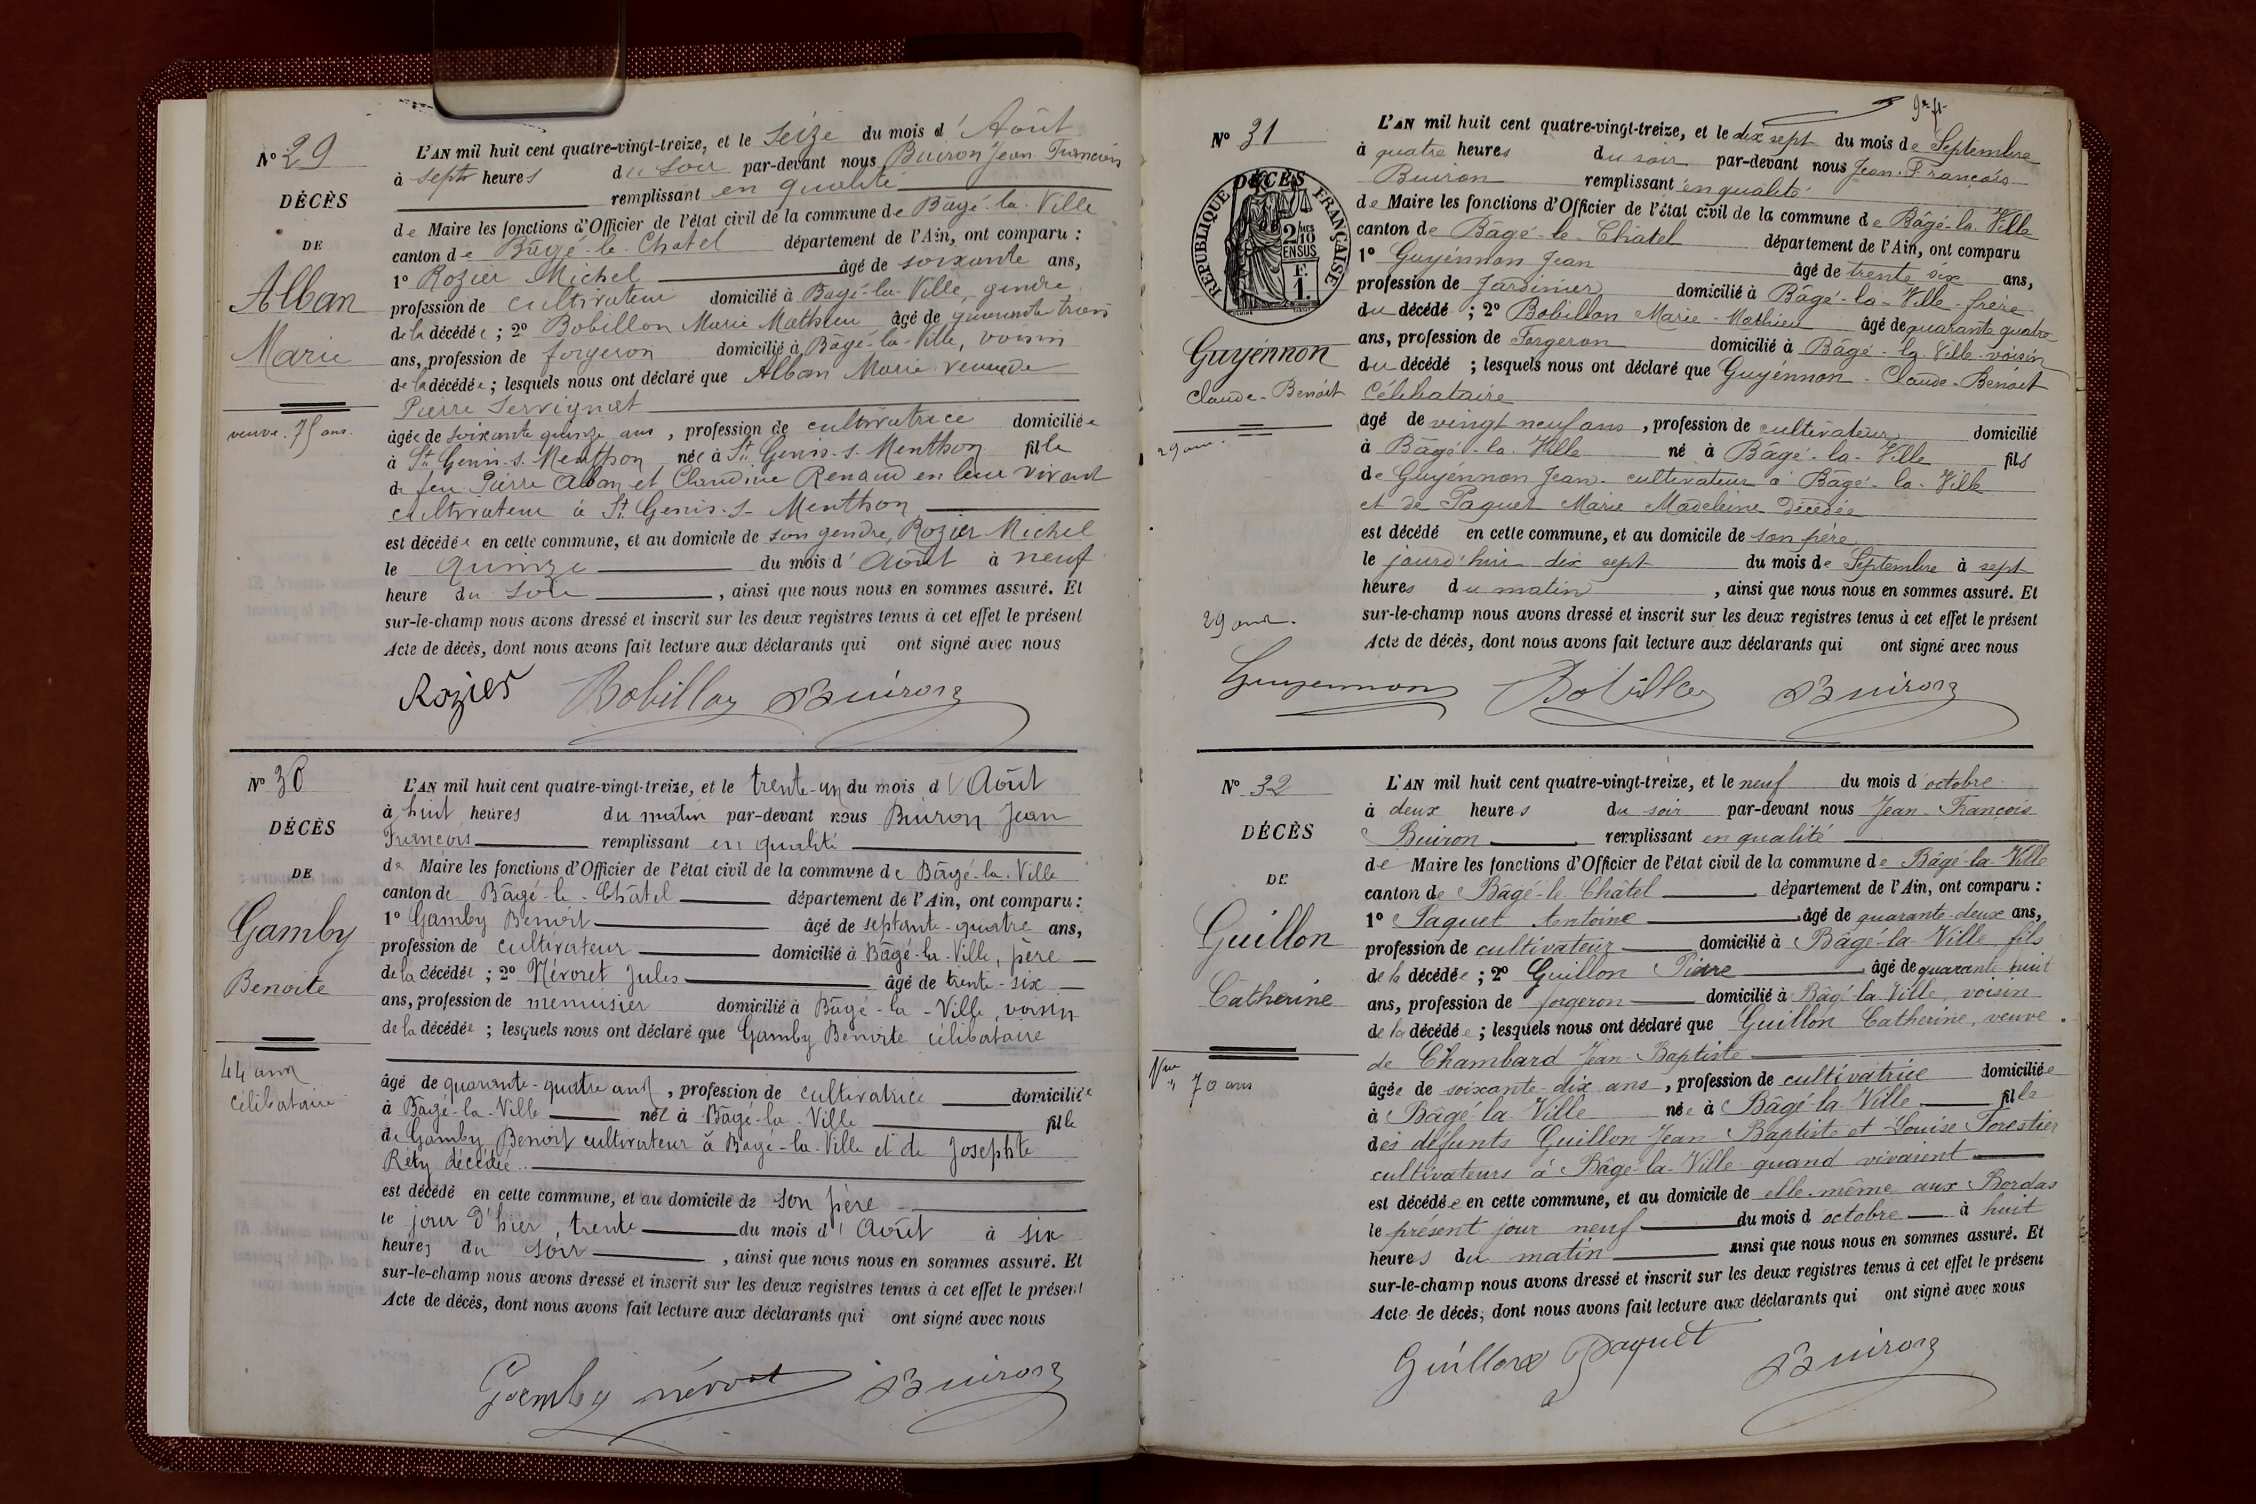 N° 29
DÉCÈS
DE
Alban
Marie
veuve. 75 ans.
L'AN mil huit cent quatre-vingt-treize, et le seize du mois d' Août
à sept heures du soir par-devant nous Buiron Jean François
remplissant en qualité
de Maire les fonctions d'Officier de l'état civil de la commune de Bâgé-la-Ville
canton de Bâgé-le-Chatel département de l'Ain, ont comparu :
1° Rozier Michel âgé de soixante ans,
profession de cultivateur domicilié à Bâgé-la-Ville, gendre
de la décédée ; 2° Bobillon Marie Mathieu âgé de quarante trois
ans, profession de forgeron domicilié à Bâgé-la-Ville, voisin
de la décédée ; lesquels nous ont déclaré que Alban Marie veuve de
Pierre Servignat
âgée de soixante quinze ans, profession de cultivatrice domiciliée
à St Genis-s-Menthon née à St Genis-s-Menthon fille
de feu Pierre Alban et Claudine Renaud en leur vivant
cultivateur à St Genis-s-Menthon
est décédée en cette commune, et au domicile de son gendre, Rozier Michel
le quinze du mois d' Août à neuf
heure du soir, ainsi que nous nous en sommes assuré. Et
sur-le-champ nous avons dressé et inscrit sur les deux registres tenus à cet effet le présent
Acte de décès, dont nous avons fait lecture aux déclarants qui ont signé avec nous
Rozier Bobillon Buiron
N° 30
DÉCÈS
DE
Gamby
Benoite
44 ans
célibataire
L'AN mil huit cent quatre-vingt-treize, et le trente-un du mois d' Août
à huit heures du matin par-devant nous Buiron Jean
François remplissant en qualité
de Maire les fonctions d'Officier de l'état civil de la commune de Bâgé-la-Ville
canton de Bâgé-le-Châtel département de l'Ain, ont comparu :
1° Gamby Benoit âgé de septante-quatre ans,
profession de cultivateur domicilié à Bâgé-la-Ville, père
de la décédée ; 2° Névoret Jules âgé de trente-six
ans, profession de menuisier domicilié à Bâgé-la-Ville, voisin
de la décédée ; lesquels nous ont déclaré que Gamby Benoite célibataire
âgé de quarante-quatre ans, profession de cultivatrice domiciliée
à Bâgé-la-Ville née à Bâgé-la-Ville fille
de Gamby Benoit cultivateur à Bâgé-la-Ville et de Josephte
Réty décédée
est décédé en cette commune, et au domicile de son père
le jour d'hier trente du mois d' Août à six
heures du soir, ainsi que nous nous en sommes assuré. Et
sur-le-champ nous avons dressé et inscrit sur les deux registres tenus à cet effet le présent
Acte de décès, dont nous avons fait lecture aux déclarants qui ont signé avec nous
Gamby Buiron
N° 31
DÉCÈS
RÉPUBLIQUE FRANÇAISE
2/10
EN SUS
F.
1.
Guyénnon
Claude-Benoit
29 ans.
29 ans.
L'AN mil huit cent quatre-vingt-treize, et le dix sept du mois de Septembre
à quatre heures du soir par-devant nous Jean-François
Buiron remplissant en qualité
de Maire les fonctions d'Officier de l'état civil de la commune de Bâgé-la-Ville
canton de Bâgé-le-Châtel département de l'Ain, ont comparu
1° Guyénnon Jean âgé de trente six ans,
profession de Jardinier domicilié à Bâgé-la-Ville frère
du décédé ; 2° Bobillon Marie-Mathieu âgé de quarante quatre
ans, profession de Forgeron domicilié à Bâgé-la-Ville voisin
du décédé ; lesquels nous ont déclaré que Guyénnon-Claude-Benoit
Célibataire
âgé de vingt neuf ans, profession de cultivateur domicilié
à Bâgé-la-Ville né à Bâgé-la-Ville fils
de Guyénnon Jean cultivateur à Bâgé-la-Ville
et de Paquet Marie Madeleine Décédée
est décédé en cette commune, et au domicile de son père
le jourd'hui dix sept du mois de Septembre à sept
heures du matin, ainsi que nous nous en sommes assuré. Et
sur-le-champ nous avons dressé et inscrit sur les deux registres tenus à cet effet le présent
Acte de décès, dont nous avons fait lecture aux déclarants qui ont signé avec nous
Guyennon Bobillon Buiron
N° 32
DÉCÈS
DE
Guillon
Catherine
Vve 70 ans
L'AN mil huit cent quatre-vingt-treize, et le neuf du mois d'octobre
à deux heures du soir par-devant nous Jean-François
Buiron remplissant en qualité
de Maire les fonctions d'Officier de l'état civil de la commune de Bâgé-la-Ville
canton de Bâgé-le-Châtel département de l'Ain, ont comparu :
1° Paquet Antoine âgé de quarante-deux ans,
profession de cultivateur domicilié à Bâgé-la-Ville fils
de la décédée ; 2° Guillon Pierre âgé de quarante huit
ans, profession de forgeron domicilié à Bâgé-la-Ville, voisin
de la décédée ; lesquels nous ont déclaré que Guillon Catherine, veuve
de Chambard Jean-Baptiste
âgée de soixante-dix ans, profession de cultivatrice domiciliée
à Bâgé-la-Ville née à Bâgé-la-Ville fille
des défunts Guillon Jean-Baptiste et Louise Forestier
cultivateurs à Bâgé-la-Ville quand vivaient
est décédée en cette commune, et au domicile de elle-même aux Bordas
le présent jour neuf du mois d'octobre à huit
heures du matin ainsi que nous nous en sommes assuré. Et
sur-le-champ nous avons dressé et inscrit sur les deux registres tenus à cet effet le présent
Acte de décès, dont nous avons fait lecture aux déclarants qui ont signé avec nous
Guillon Paquet Buiron